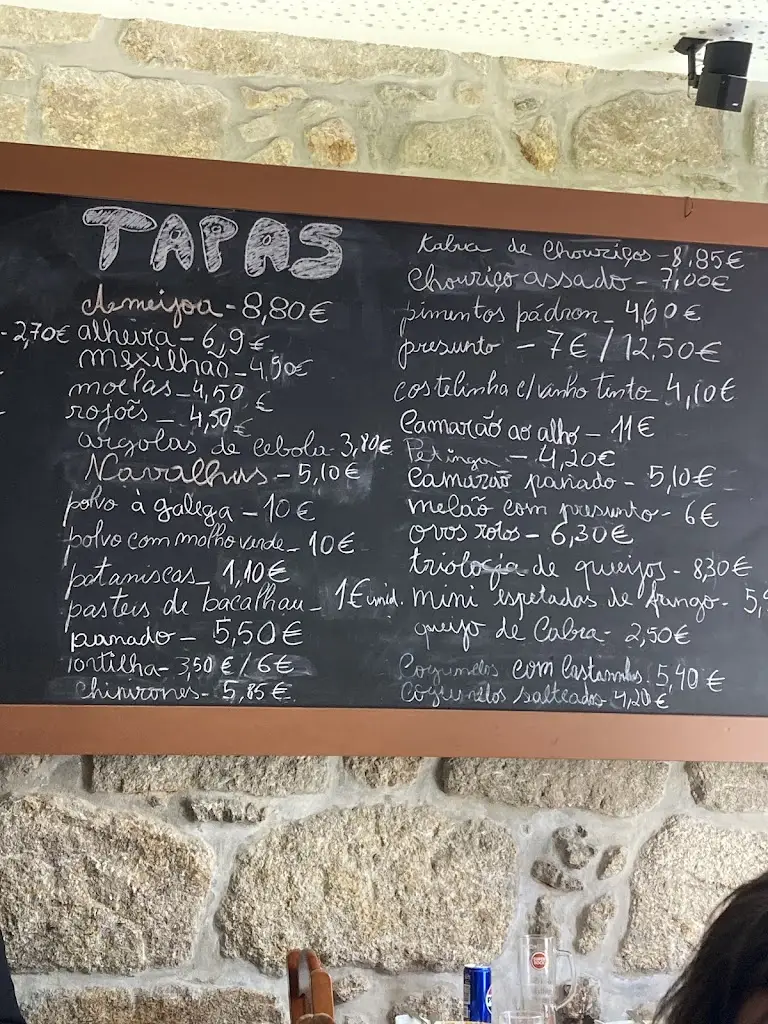 TAPAS
Ameijoa - 8,80€
- 2,70€
alheira - 6,9€
mexilhão - 4,90€
moelas - 4,50€
rojões - 4,50€
argolas de cebola - 3,80€
Navalhas - 5,10€
polvo à galega - 10€
polvo com molho verde - 10€
pataniscas - 1,10€
pasteis de bacalhau - 1€ unid.
panado - 5,50€
Tortilha - 3,50€ / 6€
chipirones - 5,85€
tabua de chouriços - 8,85€
Chouriço assado - 7,00€
pimentos pádron - 4,60€
presunto - 7€ / 12,50€
costelinha c/vinho tinto - 4,10€
Camarão ao alho - 11€
Petinga - 4,20€
Camarão panado - 5,10€
melão com presunto - 6€
ovos rotos - 6,30€
triologia de queijos - 8,30€
mini espetadas de frango - 5,
queijo de Cabra - 2,50€
Cogumelos com Castanhas - 5,40€
cogumelos salteados - 4,20€